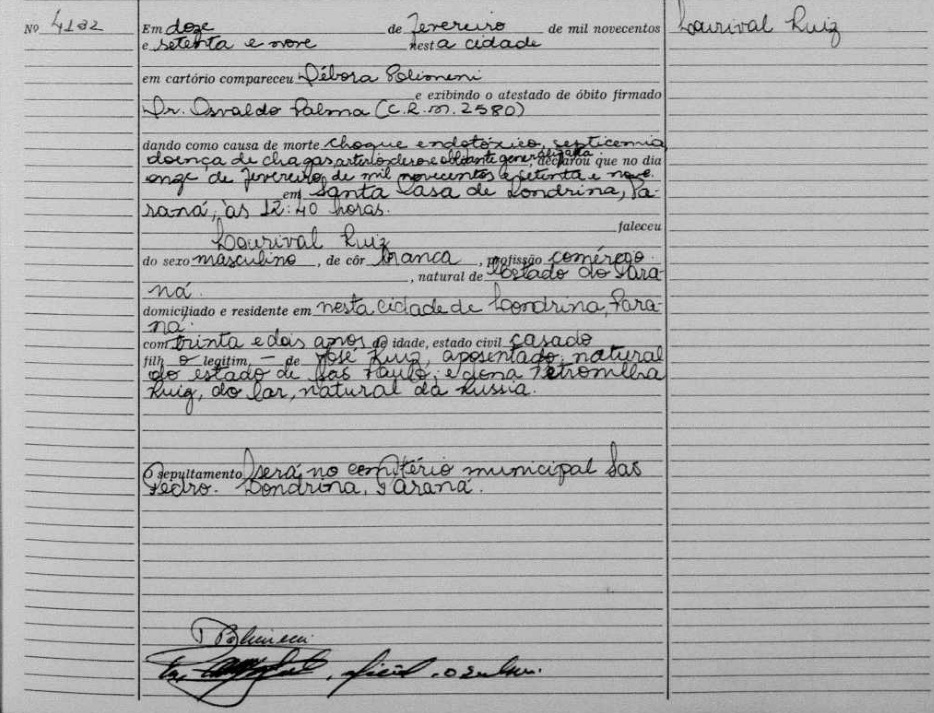 Nº 4132
Em doze de Fevereiro de mil novecentos
Lourival Ruiz
e setenta e nove nesta cidade
em cartório compareceu Débora
e exibindo o atestado de óbito firmado
Dr. Osvaldo Palma (C.R.M. 2580)
dando como causa de morte choque endotóxico, septicemia,
doença de chagas arteriosclerose obliterante generalizada, declarou que no dia
onze de Fevereiro de mil novecentos e setenta e nove
em Santa Casa de Londrina, Pa-
raná, às 12:40 horas.
faleceu
Lourival Ruiz
do sexo masculino, de côr branca, profissão comércio
, natural de Estado do Para-
ná.
domiciliado e residente em nesta cidade de Londrina, Para-
ná.
com trinta e dois anos de idade, estado civil casado
filho legitim, — de José Ruiz, aposentado, natural
do estado de São Paulo; e dona Petronilha
Ruiz, do lar, natural da Russia.
O sepultamento será no cemitério municipal São
Pedro. Londrina, Paraná.